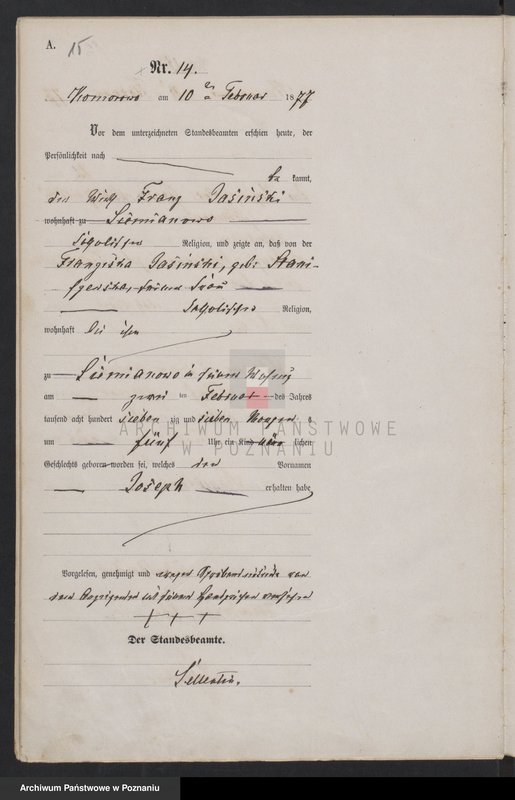 A. 15
Nr. 14.
Komorowo am 10 ten Februar 1877
Vor dem unterzeichneten Standesbeamten erschien heute, der
Persönlichkeit nach
be kannt,
der Wirth Franz Jasiński
wohnhaft zu Siemianowo
katholischer Religion, und zeigte an, daß von der
Franziska Jasiński, geb:
seiner Frau
katholischer Religion,
wohnhaft bei ihm
zu Siemianowo in seiner Wohnung
am zwei ten Februar des Jahres
tausend acht hundert sieben zig und sieben Morgens
um fünf Uhr ein Kind männ lichen
Geschlechts geboren worden sei, welches den Vornamen
Joseph erhalten habe
Vorgelesen, genehmigt und wegen von
dem Anzeigenden mit seinem Handzeichen versehen
+ + +
Der Standesbeamte.
ARCHIWUM PAŃSTWOWE
W POZNANIU
Archiwum Państwowe w Poznaniu